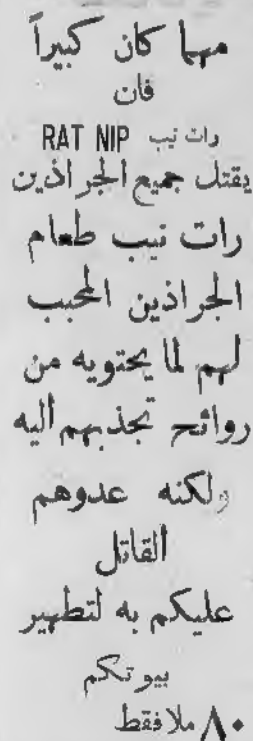 مهما كان كبيراً
فان
رات نيب RAT NIP
يقتل جميع الجراذين
رات نيب طعام
الجراذين المحبب
لهم لما يحتويه من
روائح تجذبهم أليه
ولكنه عدوهم
القاتل
عليكم به لتطهير
بيوتكم
٨٠ ملا فقط